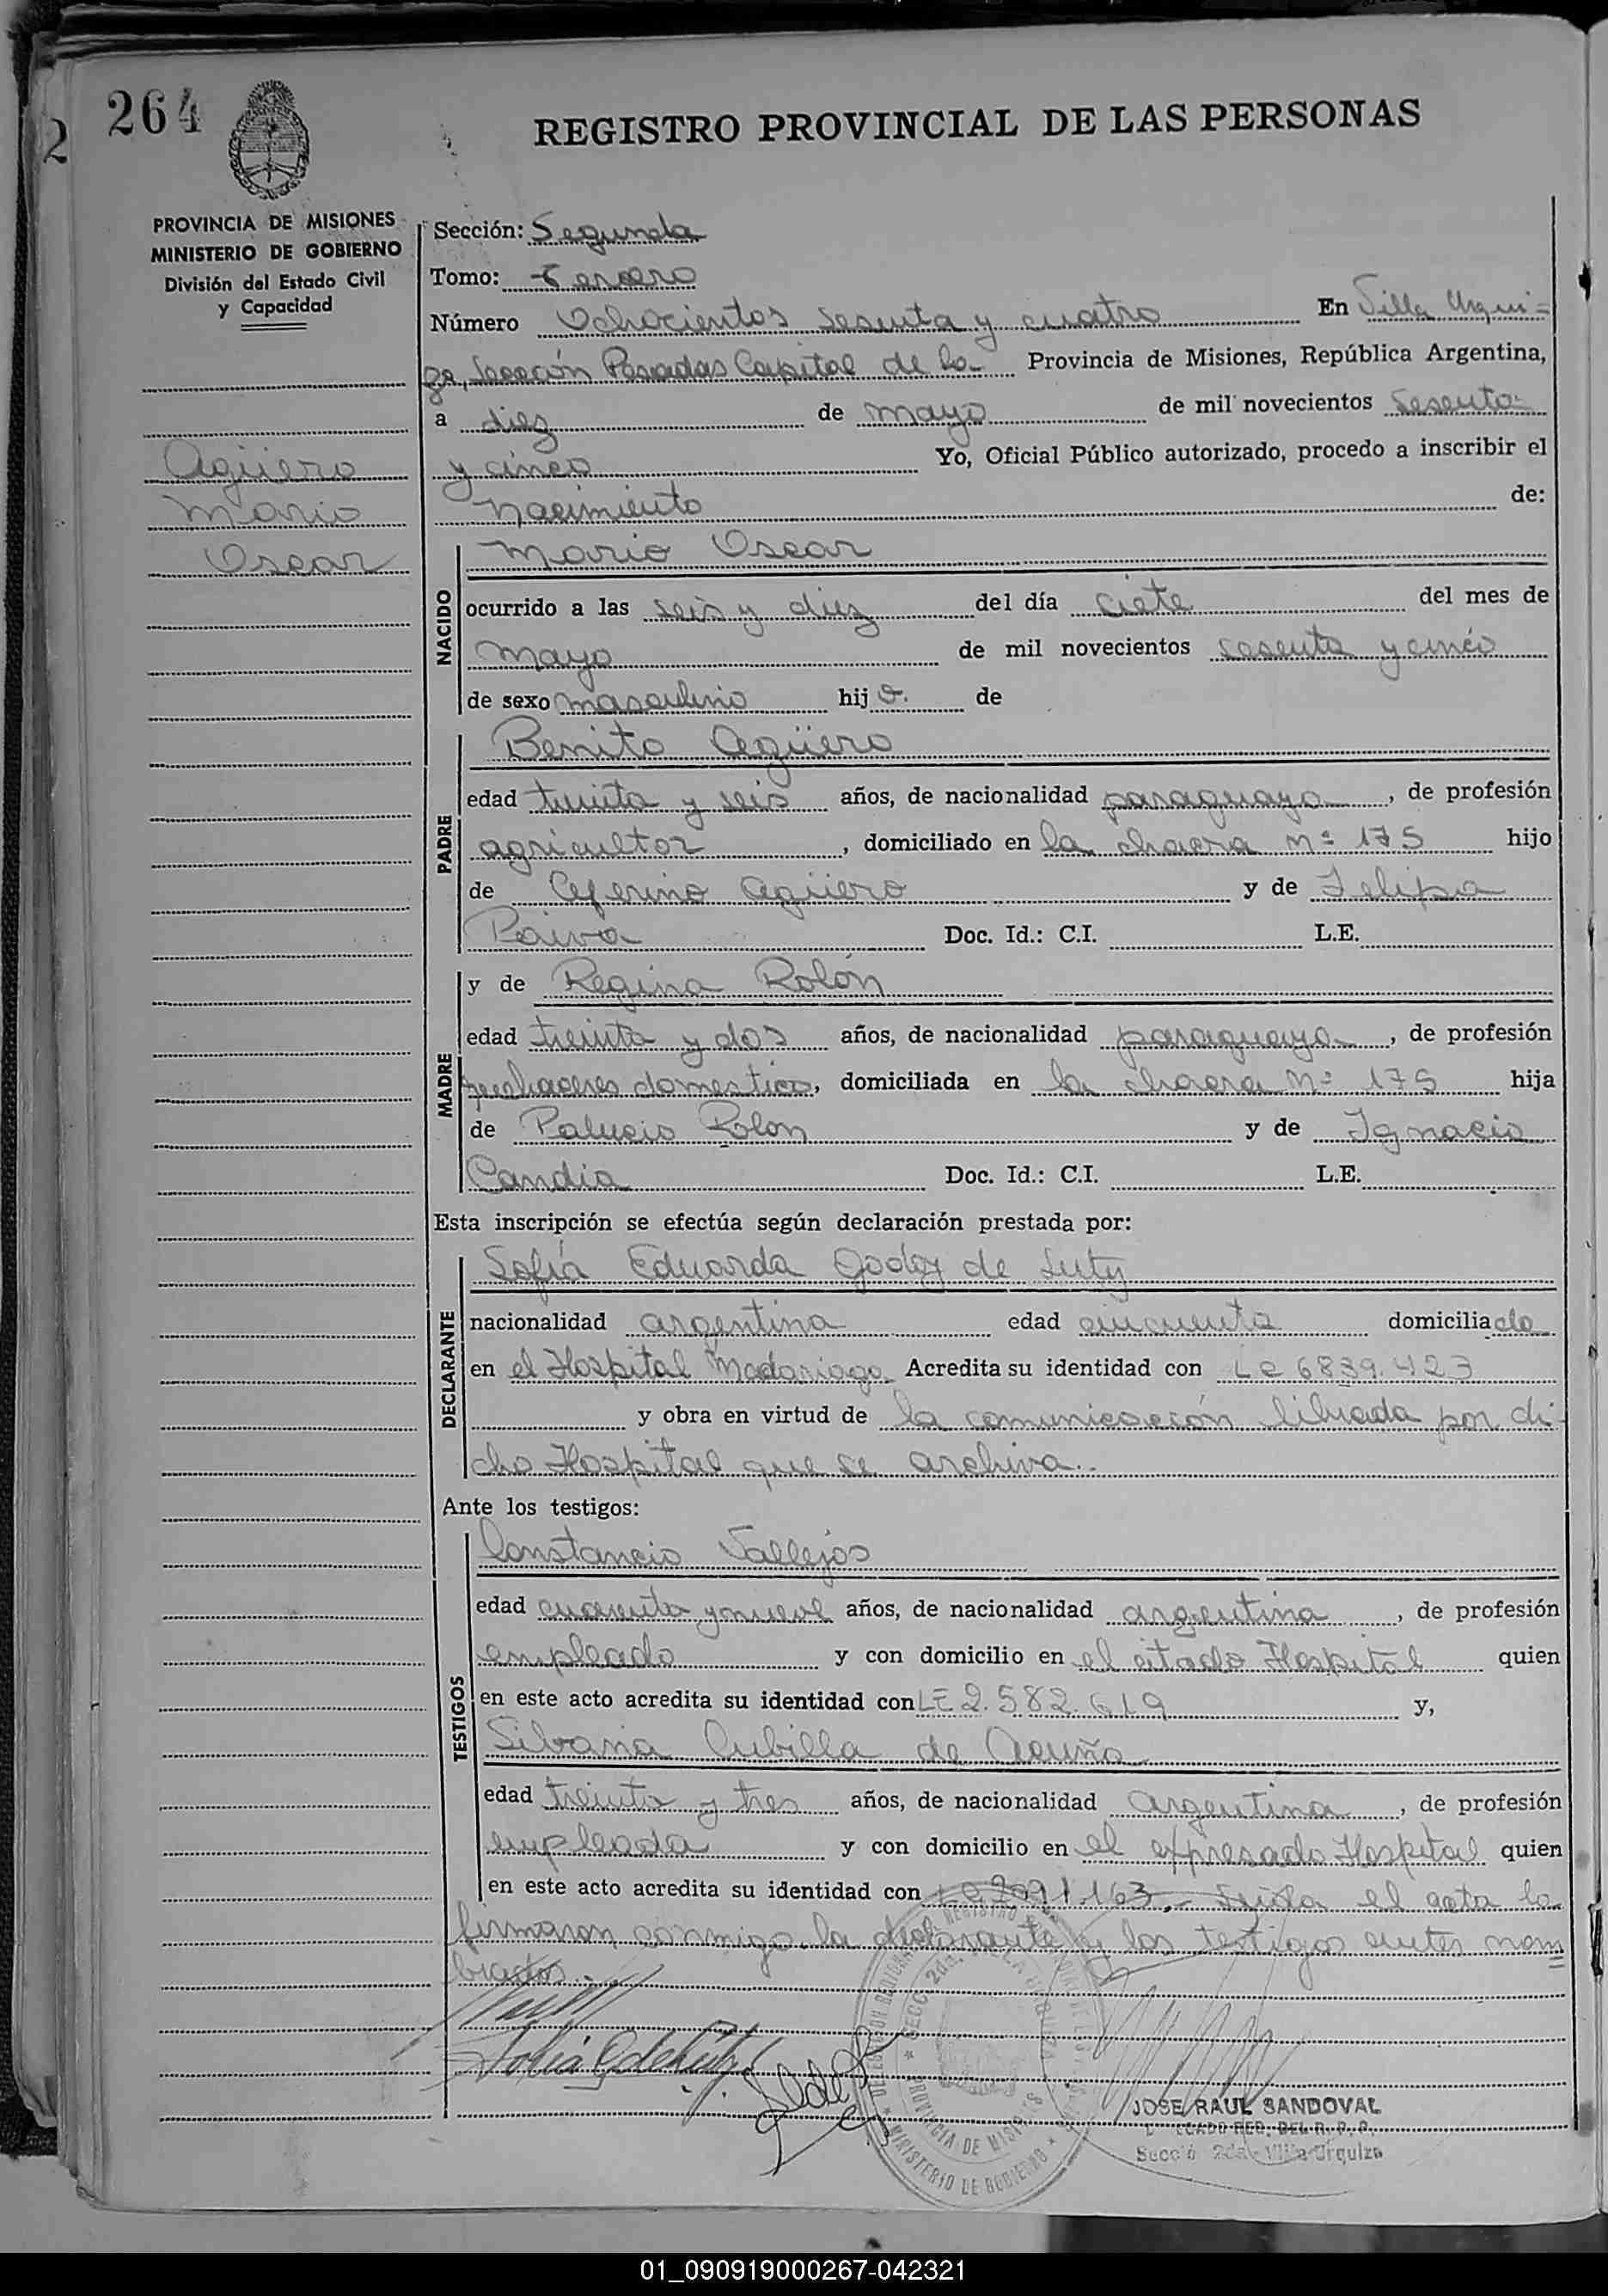 264
2
REGISTRO PROVINCIAL DE LAS PERSONAS
PROVINCIA DE MISIONES
MINISTERIO DE GOBIERNO
División del Estado Civil
y Capacidad
Agüero
Mario
Oscar
Sección: Segunda
Tomo: tercero
Número Ochocientos sesenta y cuatro En Villa Urqui=
za, Sección Posadas Capital de la Provincia de Misiones, República Argentina,
a diez de mayo de mil novecientos sesenta
y cinco Yo, Oficial Público autorizado, procedo a inscribir el
nacimiento de:
NACIDO
Mario Oscar
ocurrido a las seis y diez del día ciete del mes de
mayo de mil novecientos sesenta y cinco
de sexo masculino hijo. de
PADRE
Benito Agüero
edad treinta y seis años, de nacionalidad paraguaya, de profesión
agricultor, domiciliado en la chacra Nº 175 hijo
de Ceferino Agüero y de Felipa
Paiva Doc. Id.: C.I. L.E.
MADRE
y de Regina Rolón
edad treinta y dos años, de nacionalidad paraguaya, de profesión
quehaceres domestico, domiciliada en la chacra Nº 175 hija
de Rolon y de Ignacia
Candia Doc. Id.: C.I. L.E.
Esta inscripción se efectúa según declaración prestada por:
DECLARANTE
Sofía Eduarda Godoy de
nacionalidad argentina edad cincuenta domiciliada
en el Hospital Madariaga. Acredita su identidad con Lc 6839.423
y obra en virtud de la comunicación librada por di-
cho Hospital que se archiva.-
Ante los testigos:
TESTIGOS
Constancio Vallejos
edad cuarenta y nueve años, de nacionalidad argentina, de profesión
empleado y con domicilio en el citado Hospital quien
en este acto acredita su identidad con LE 2.582.619 y,
Silvana Cubilla de Acuña
edad treinta y tres años, de nacionalidad argentina, de profesión
empleada y con domicilio en el expresado Hospital quien
en este acto acredita su identidad con 2091.163.- Leida el acta la
firmaron conmigo la declarante y los testigos antes nom
brados.-
JOSE RAUL SANDOVAL
Secció 2da - Villa Urquiza
PROVINCIA DE MISIONES
MINISTERIO DE GOBIERNO
01_090919000267-042321